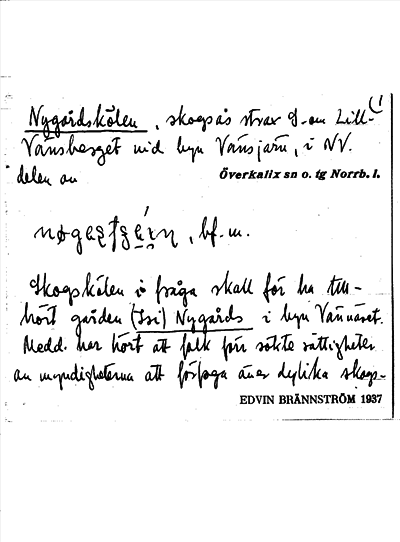 (1
Nygårdskölen, skogsås strax S-om Lill-
Vänsberget vid byn Vänsjärn, i NV.
delen av Överkalix sn o. tg Norrb. l.
bf. m.
Skogskölen i fråga skall för ha till-
hört gården (Isi) Nygårds i byn Vännäset.
Medd. har hört att folk förr sökte rättigheter
av myndigheterna att förfoga över dylika skogs-
EDVIN BRÄNNSTRÖM 1937